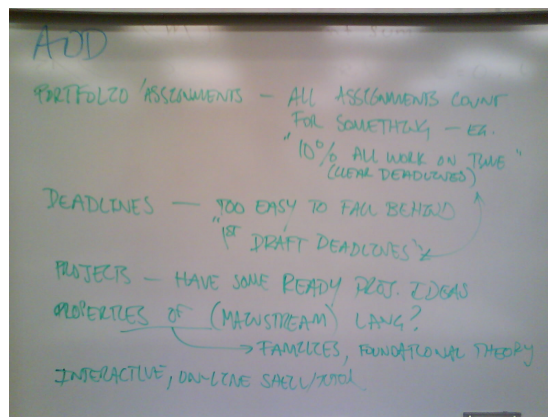 AOD
PORTFOLIO ASSIGNMENTS — ALL ASSIGNMENTS COUNT
FOR SOMETHING — EG.
"10% ALL WORK ON TIME"
(CLEAR DEADLINES)
DEADLINES — TOO EASY TO FALL BEHIND
"1ST DRAFT DEADLINES"
PROJECTS — HAVE SOME READY PROJ. IDEAS
PROPERTIES OF (MAINSTREAM) LANG?
→ FAMILIES, FOUNDATIONAL THEORY
INTERACTIVE, ON-LINE